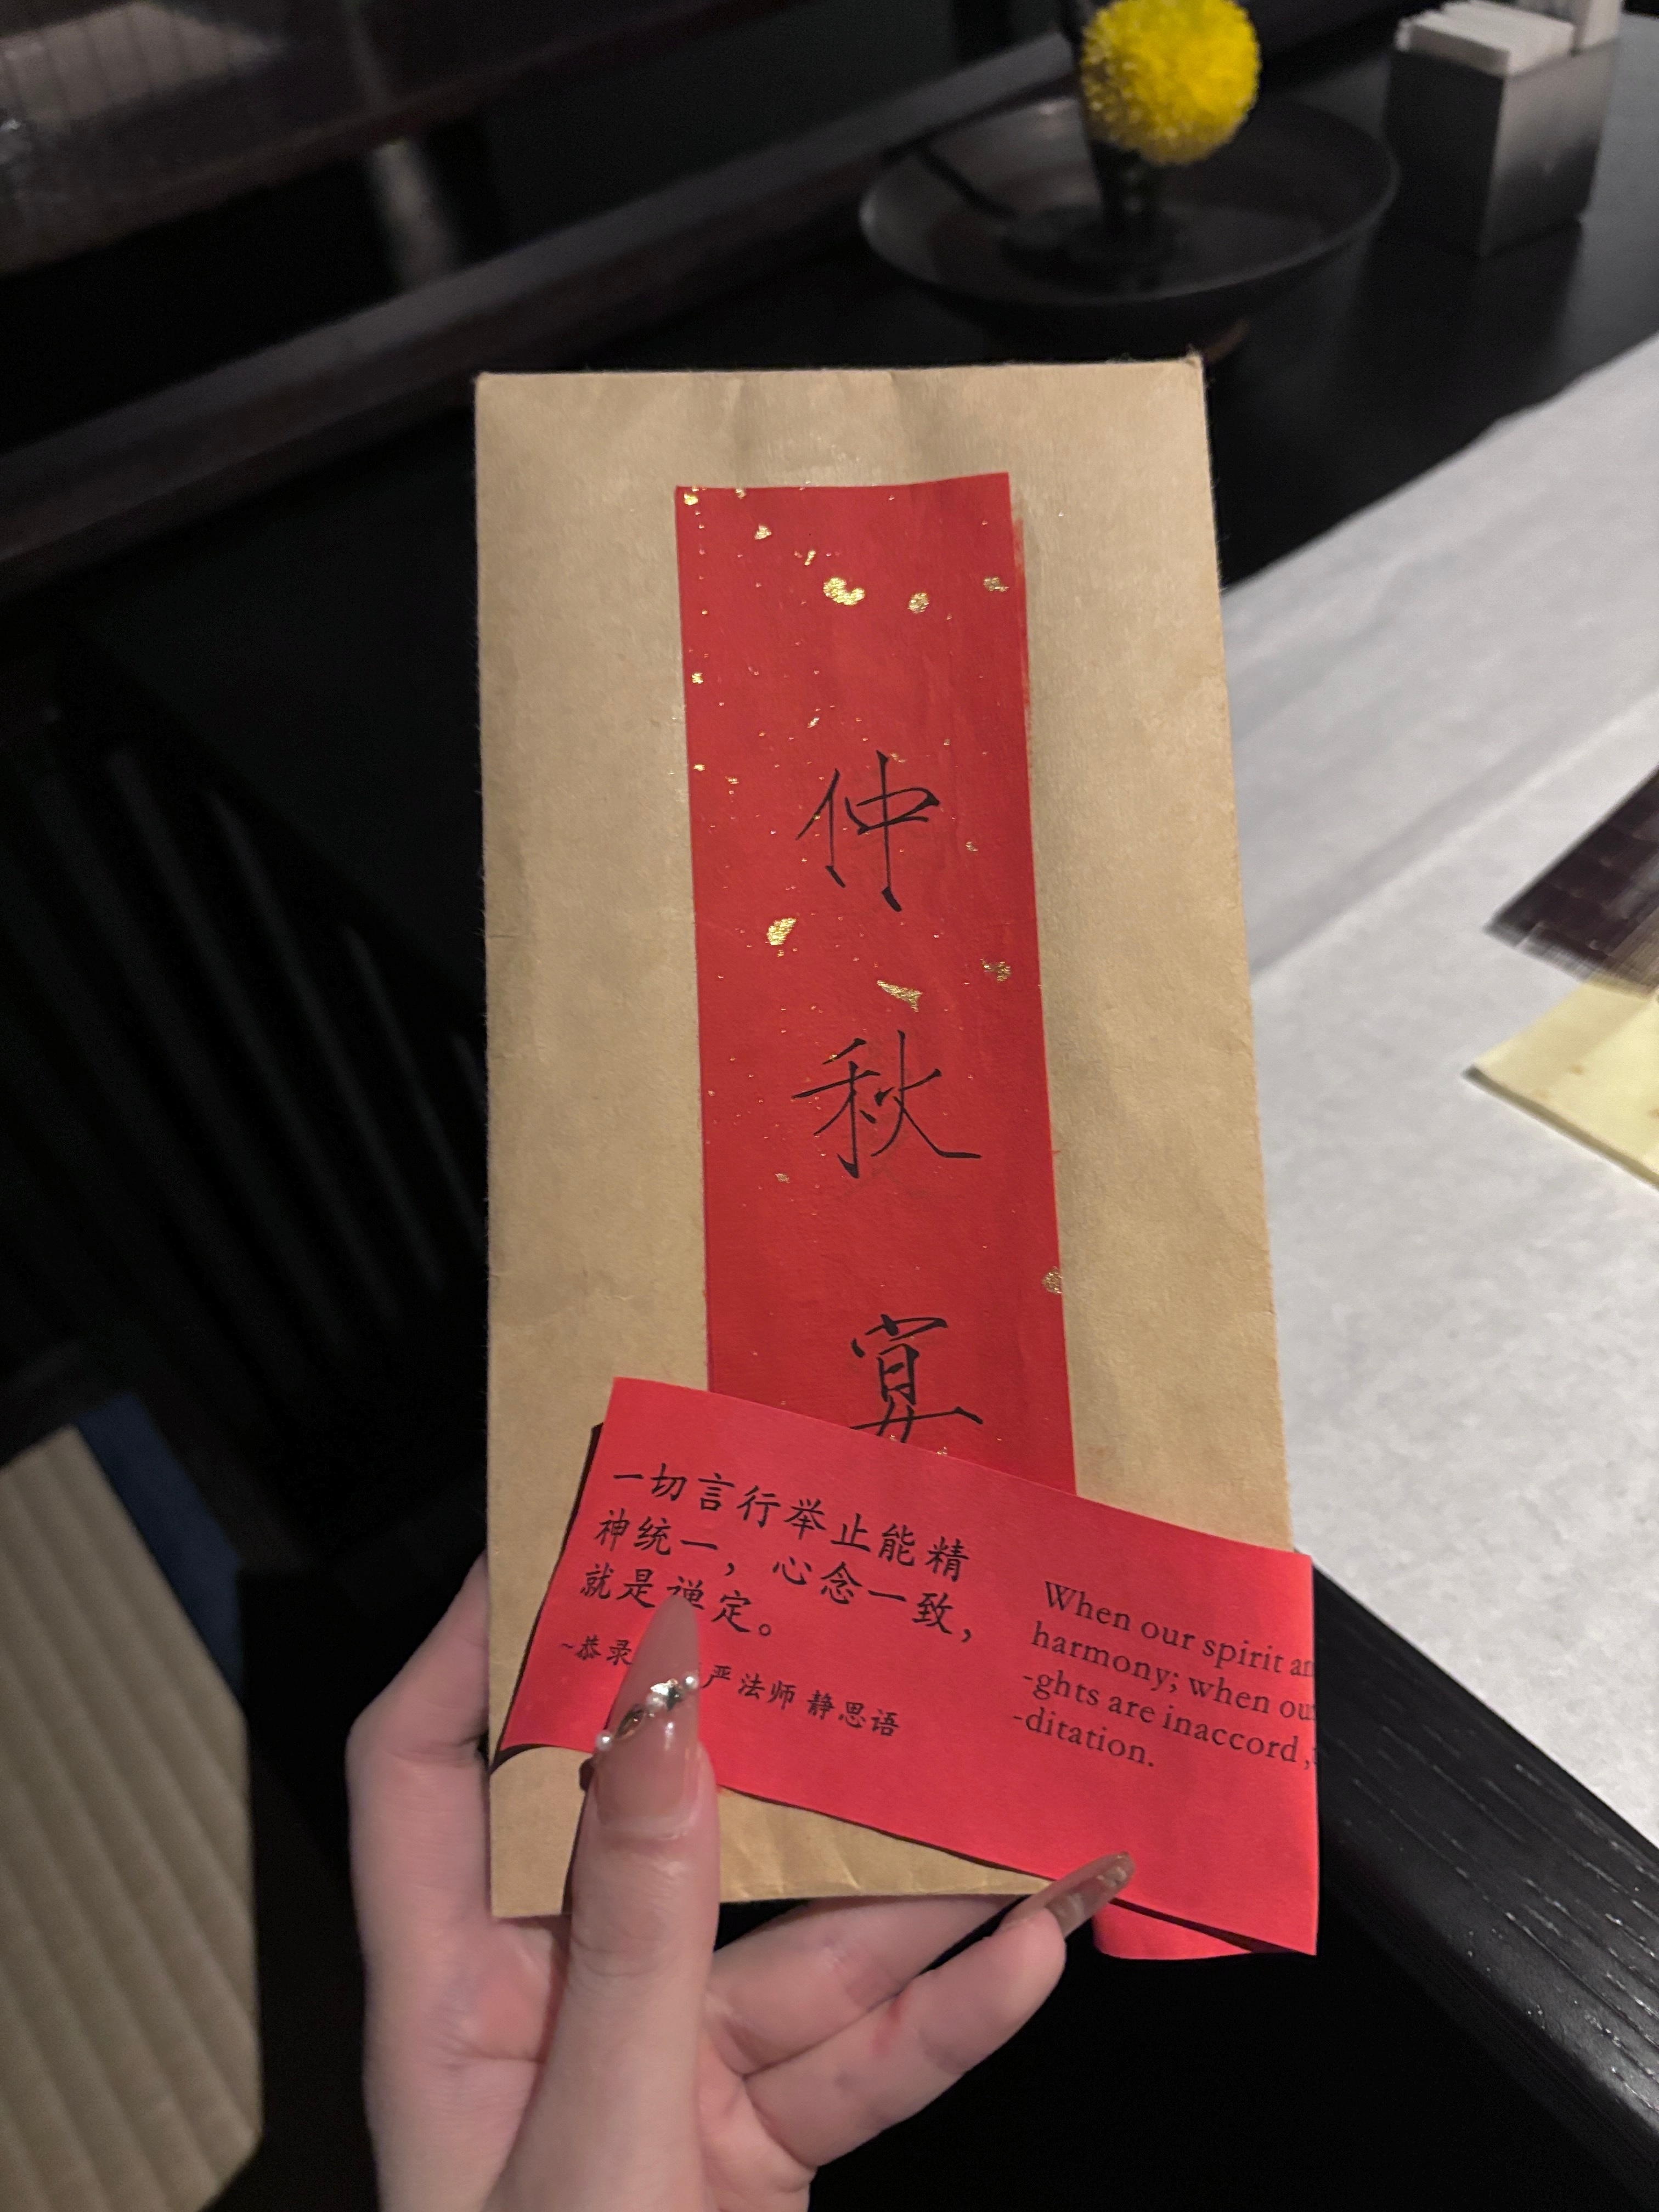 仲
秋
一切言行举止能精
神统一，心念一致，
就是禅定。
~恭录 严法师 静思语
When our spirit
harmony; when
-ghts are inaccord,
-ditation.